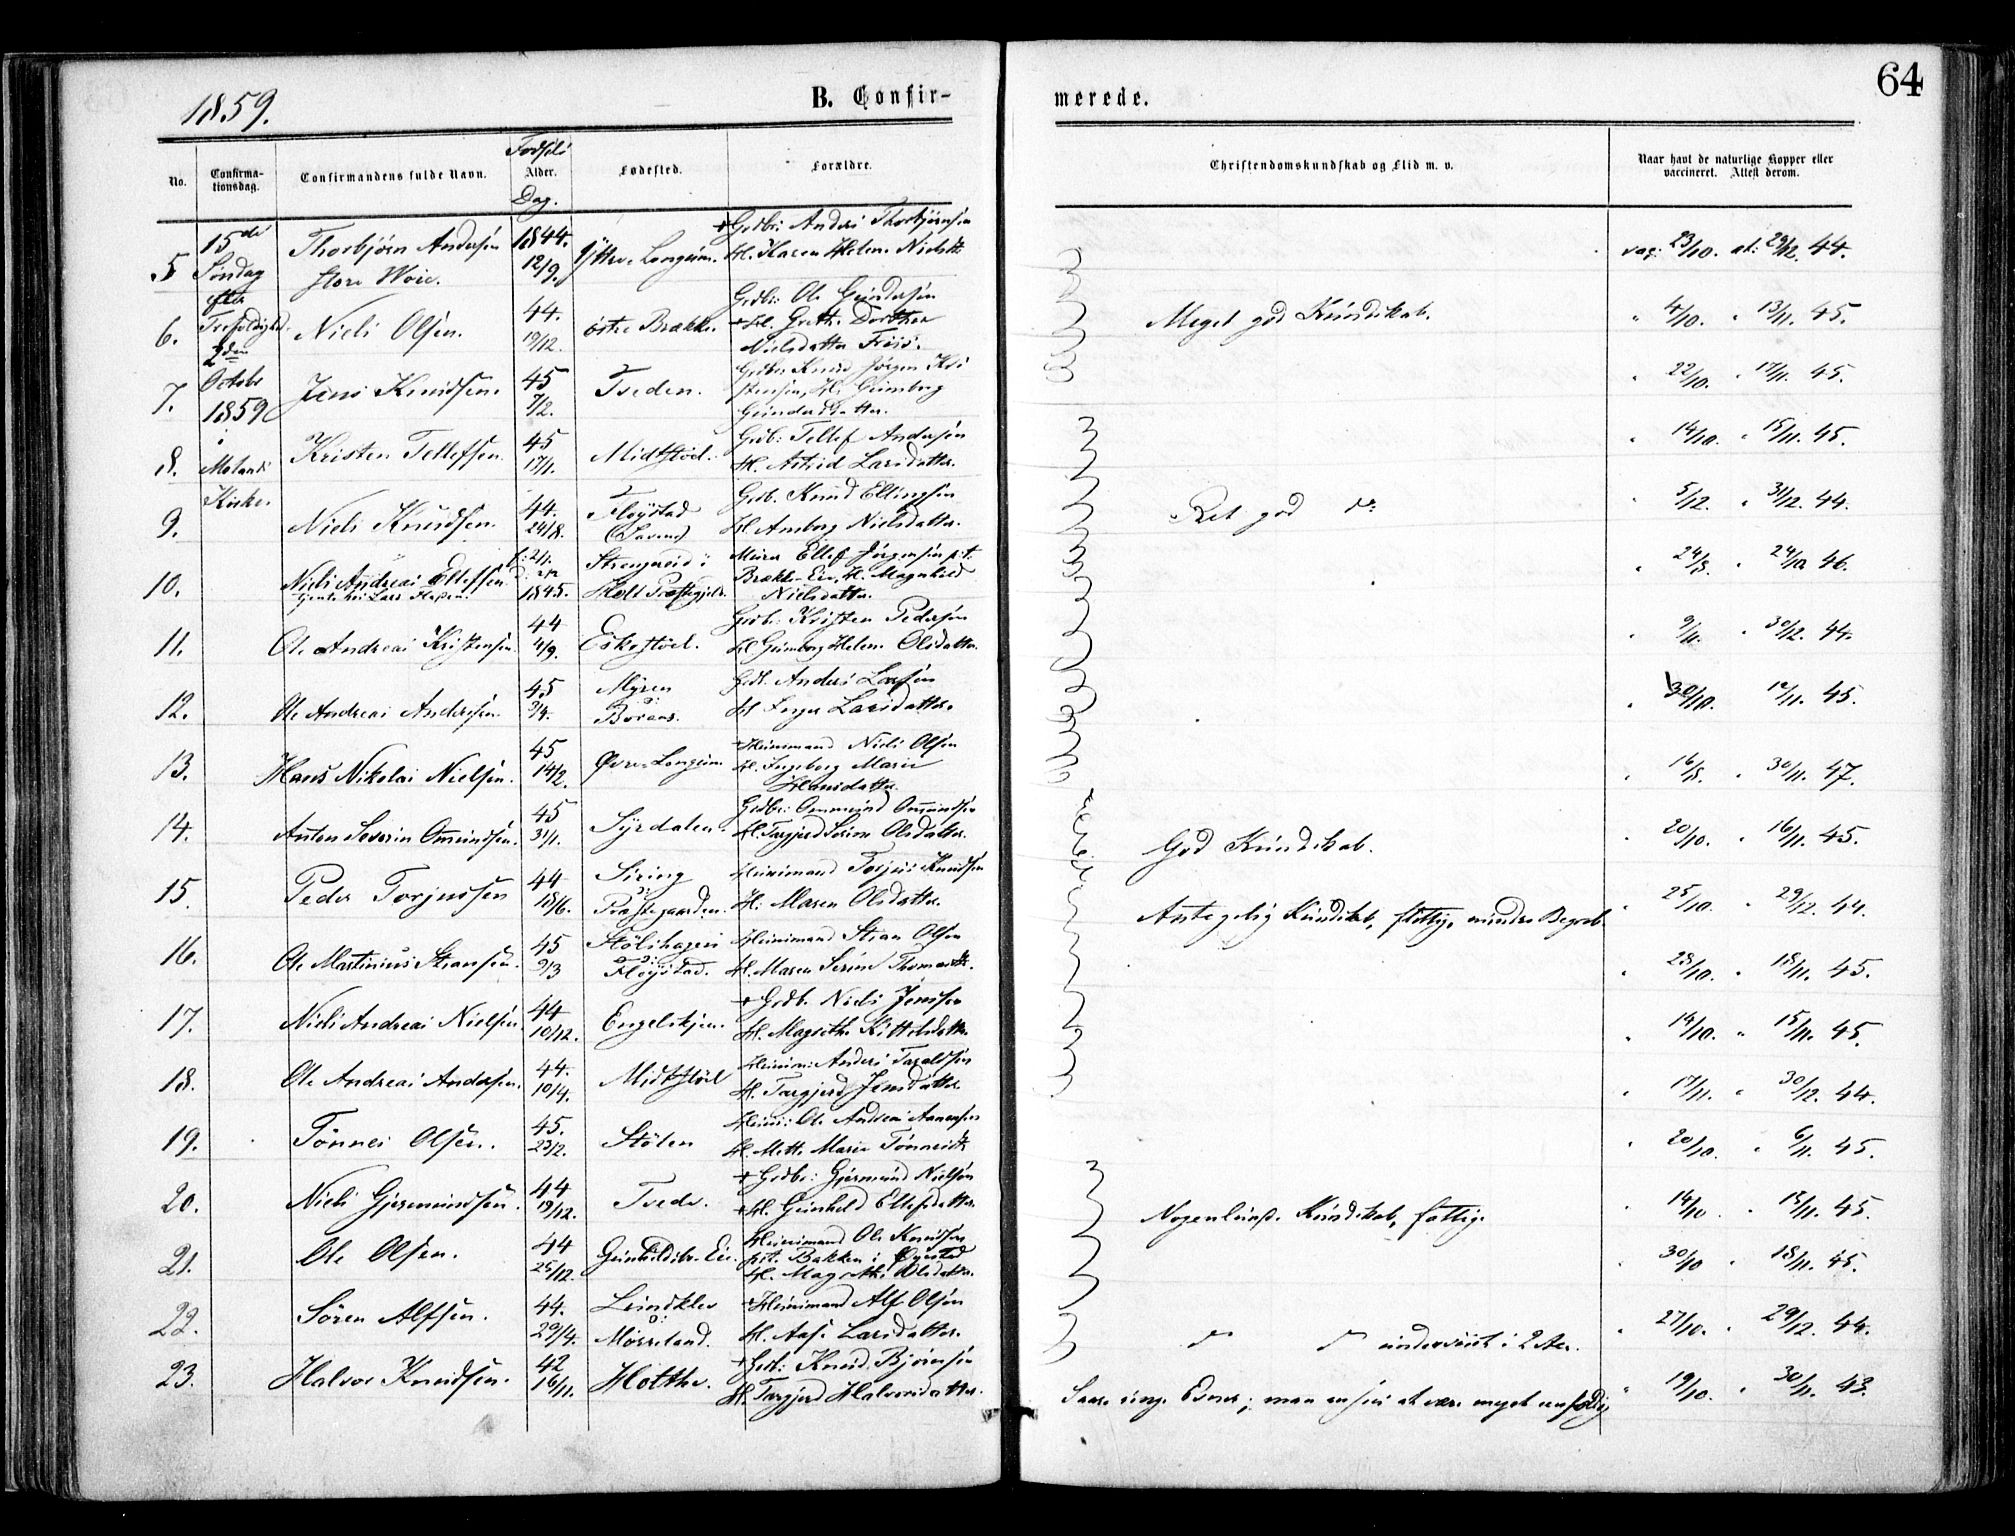 64
1859.
B. Confir-
merede.
No.
Confirma-
tionsdag.
Confirmandens fulde Navn.
Fødsels
Alder.
Dag.
Fødested.
Forældre.
Christendomskundskab og Flid m. v.
Naar havt de naturlige Kopper eller
vaccineret. Attest derom.
15de
Søndag
efter
Trefoldighed
2den
Octobr
1859
i
Molands
Kirke.
5 Thorbjørn Andersen 1844. 12/9. Yttre Longum. + Grdbr: Anders Thorbjørnsen
H. Karen Helene Nielsdtr
vac: 23/10. at: 29/12. 44.
6. Niels Olsen. 44. 19/12. østre Brække. Grdbr: Ole Gundersen
+ H. Grethe Dorthea
Nielsdatter
Meget god Kundskab. " 4/10. " 13/11. 45.
7. Jens Knudsen. 45 7/2. Tveden. Grdbr Knud Jørgen Kri
stensen, H. Gunborg
Gundersdatter.
" 22/10. " 17/11. 45.
8. Kristen Tellefsen 45 17/1. Midtstöl. Grdb: Tellef Andersen
H. Astrid Larsdatter.
" 14/10. " 15/11. 45.
9. Niels Knudsen. 44. 24/8. Fløystad Grdb. Knud Ellingsen
H. Amborg Nielsdatter.
Ret god do " 5/12. " 31/12. 44.
10. Niels Andreas Ellefsen 1845. Strengereid i
Holt Præstegjeld. Ellef Jørgensen p.t.
Brække Eie, H. Magnhild
Nielsdatter.
" 24/8. " 24/10 46.
11. Ole Andreas Kristensen. 44 4/9. Eskestöl. Grdb: Kristen Pedersen
H. Gunborg Helene Olsdatter.
" 9/11. " 30/12. 44.
12. Ole Andreas Andersen. 45 Myren
Boraas. Grdb. Anders Larsen
H. Inger Larsdatter.
" 30/10. " 12/11. 45.
13. Hans Nikolai Nielsen. 45 14/2. Øvre Longum + Huusmand Niels Olsen
H. Ingeborg Marie
Hansdatter.
" 16/8. " 30/11. 47.
14. Anton Severin Omundsen. 45 31/1. Syrdalen. Grdbr: Ommund Omundsen
H. Targjerd Serine Olsdatter.
God Kundskab. " 20/10. " 16/11. 45.
15. Peder Torjussen 44 18/6. Siring
Præstegaarden. Huusmand Torjus Knudsen
H: Maren Olsdatter.
Antagelig Kundskab, flittig, mindre Begreb. " 25/10. " 29/12. 44.
16. Ole Martinius Stiansen. 45 9/3 Stölshagen
Fløystad. Huusmand Stian Olsen
H. Maren Serine Thomasdtr.
" 28/10. " 18/11. 45.
17. Niels Andreas Nielsen 44 10/12. Engelskjen. + Grdb. Niels Jensen
H. Magrethe Kittelsdatter
" 14/10. " 15/11. 45.
18. Ole Andreas Andersen. 44. 10/4. Midtstöl Huusm: Anders Taraldsen
H. Targjerd Jensdatter.
" 17/11. " 30/12. 44.
19. Tönnes Olsen. 45. 23/2. Stölen Huusm: Ole Andreas Aanensen
H. Mette Marie Tönnesdtr
" 20/10. " 6/11. 45.
20. Niels Gjermundsen. 44 19/12. Tvede. + Grdbr: Gjermund Nielsen
+ H. Gunhild Ellefsdatter.
Nogenlunde Kundskab, fattig. " 14/10 " 15/11. 45.
21. Ole Olsen. 44 25/12. Gunhildsbr. Eie. Huusmand Ole Knudsen
p.t. Bakken i Øyestad
H. Magrethe Olsdatter.
" 30/10 " 18/11. 45.
22. Sören Alfsen. 44. 29/4. Lindklev
Mørreland. + Huusmand Alf Olsen
H. Aase Larsdatter.
do do underviist i 2 Aar. " 27/10. " 29/12. 44.
23. Halvor Knudsen. 42 16/11. Holthe. + Grdb: Knud Bjørnsen
H. Targjerd Halvorsdatter.
Saare ringe Evner; man ansees at være meget eenfoldig " 19/10. " 30/11. 43.